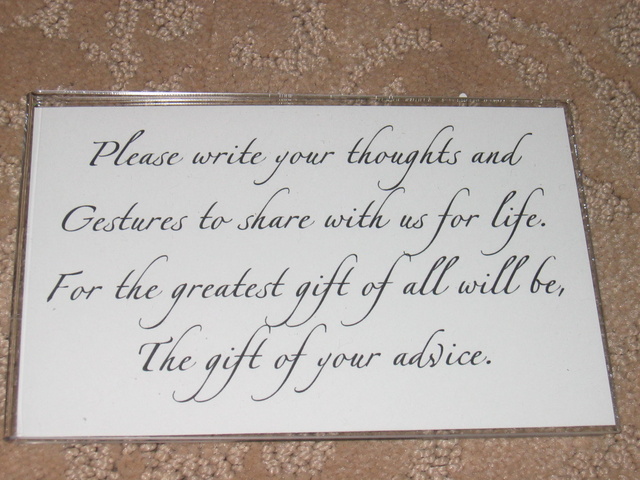 Please write your thoughts and
Gestures to share with us for life.
For the greatest gift of all will be,
The gift of your advice.